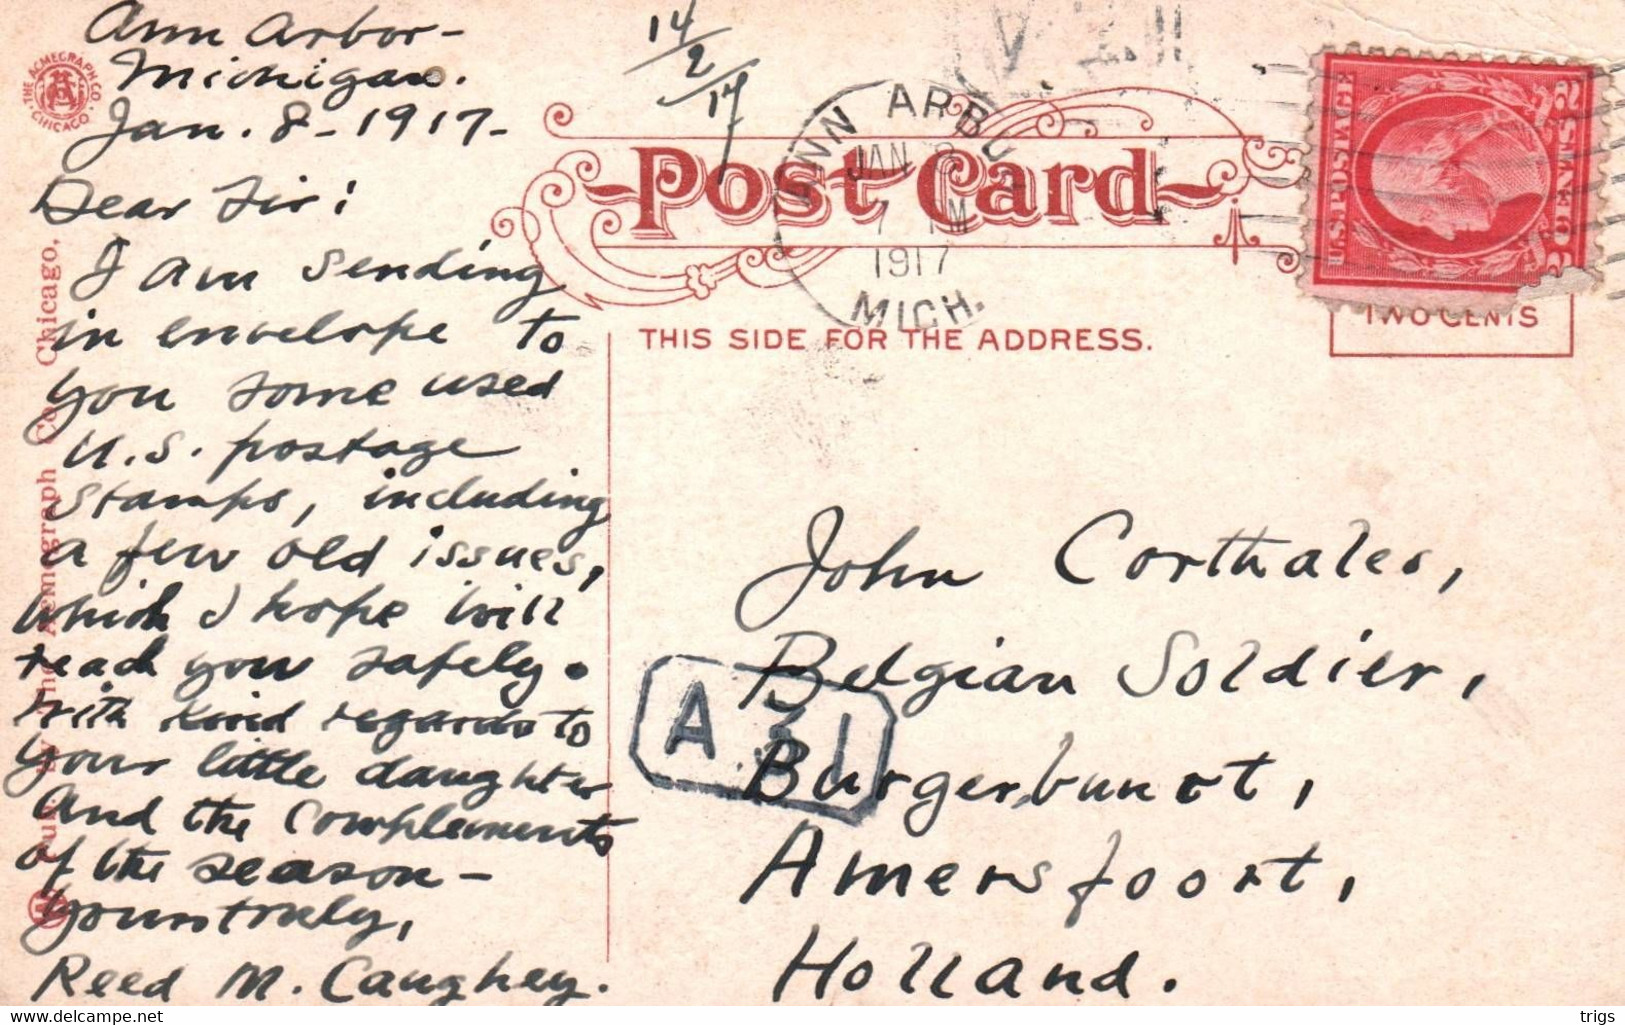 Ann Arbor -
Michigan.
Jan. 8 - 1917 -
Dear Sir:
I am sending
in envelope to
you some used
U.S. postage
stamps, including
a few old issues,
which I hope will
reach you safely.
With kind regards to
your little daughter
and the complements
of the season -
Yours truly,
Reed M. Caughey.
14/2/17
THE ACMEGRAPH CO.
CHICAGO
Pub. by The Acmegraph Co. Chicago.
Post Card
THIS SIDE FOR THE ADDRESS.
ANN ARBOR
JAN 8
7 PM
1917
MICH.
U.S. POSTAGE
2 CENTS 2
TWO CENTS
John Corthales,
Belgian Soldier,
A 31
Burgerbuurt,
Amersfoort,
Holland.
www.delcampe.net
trigs